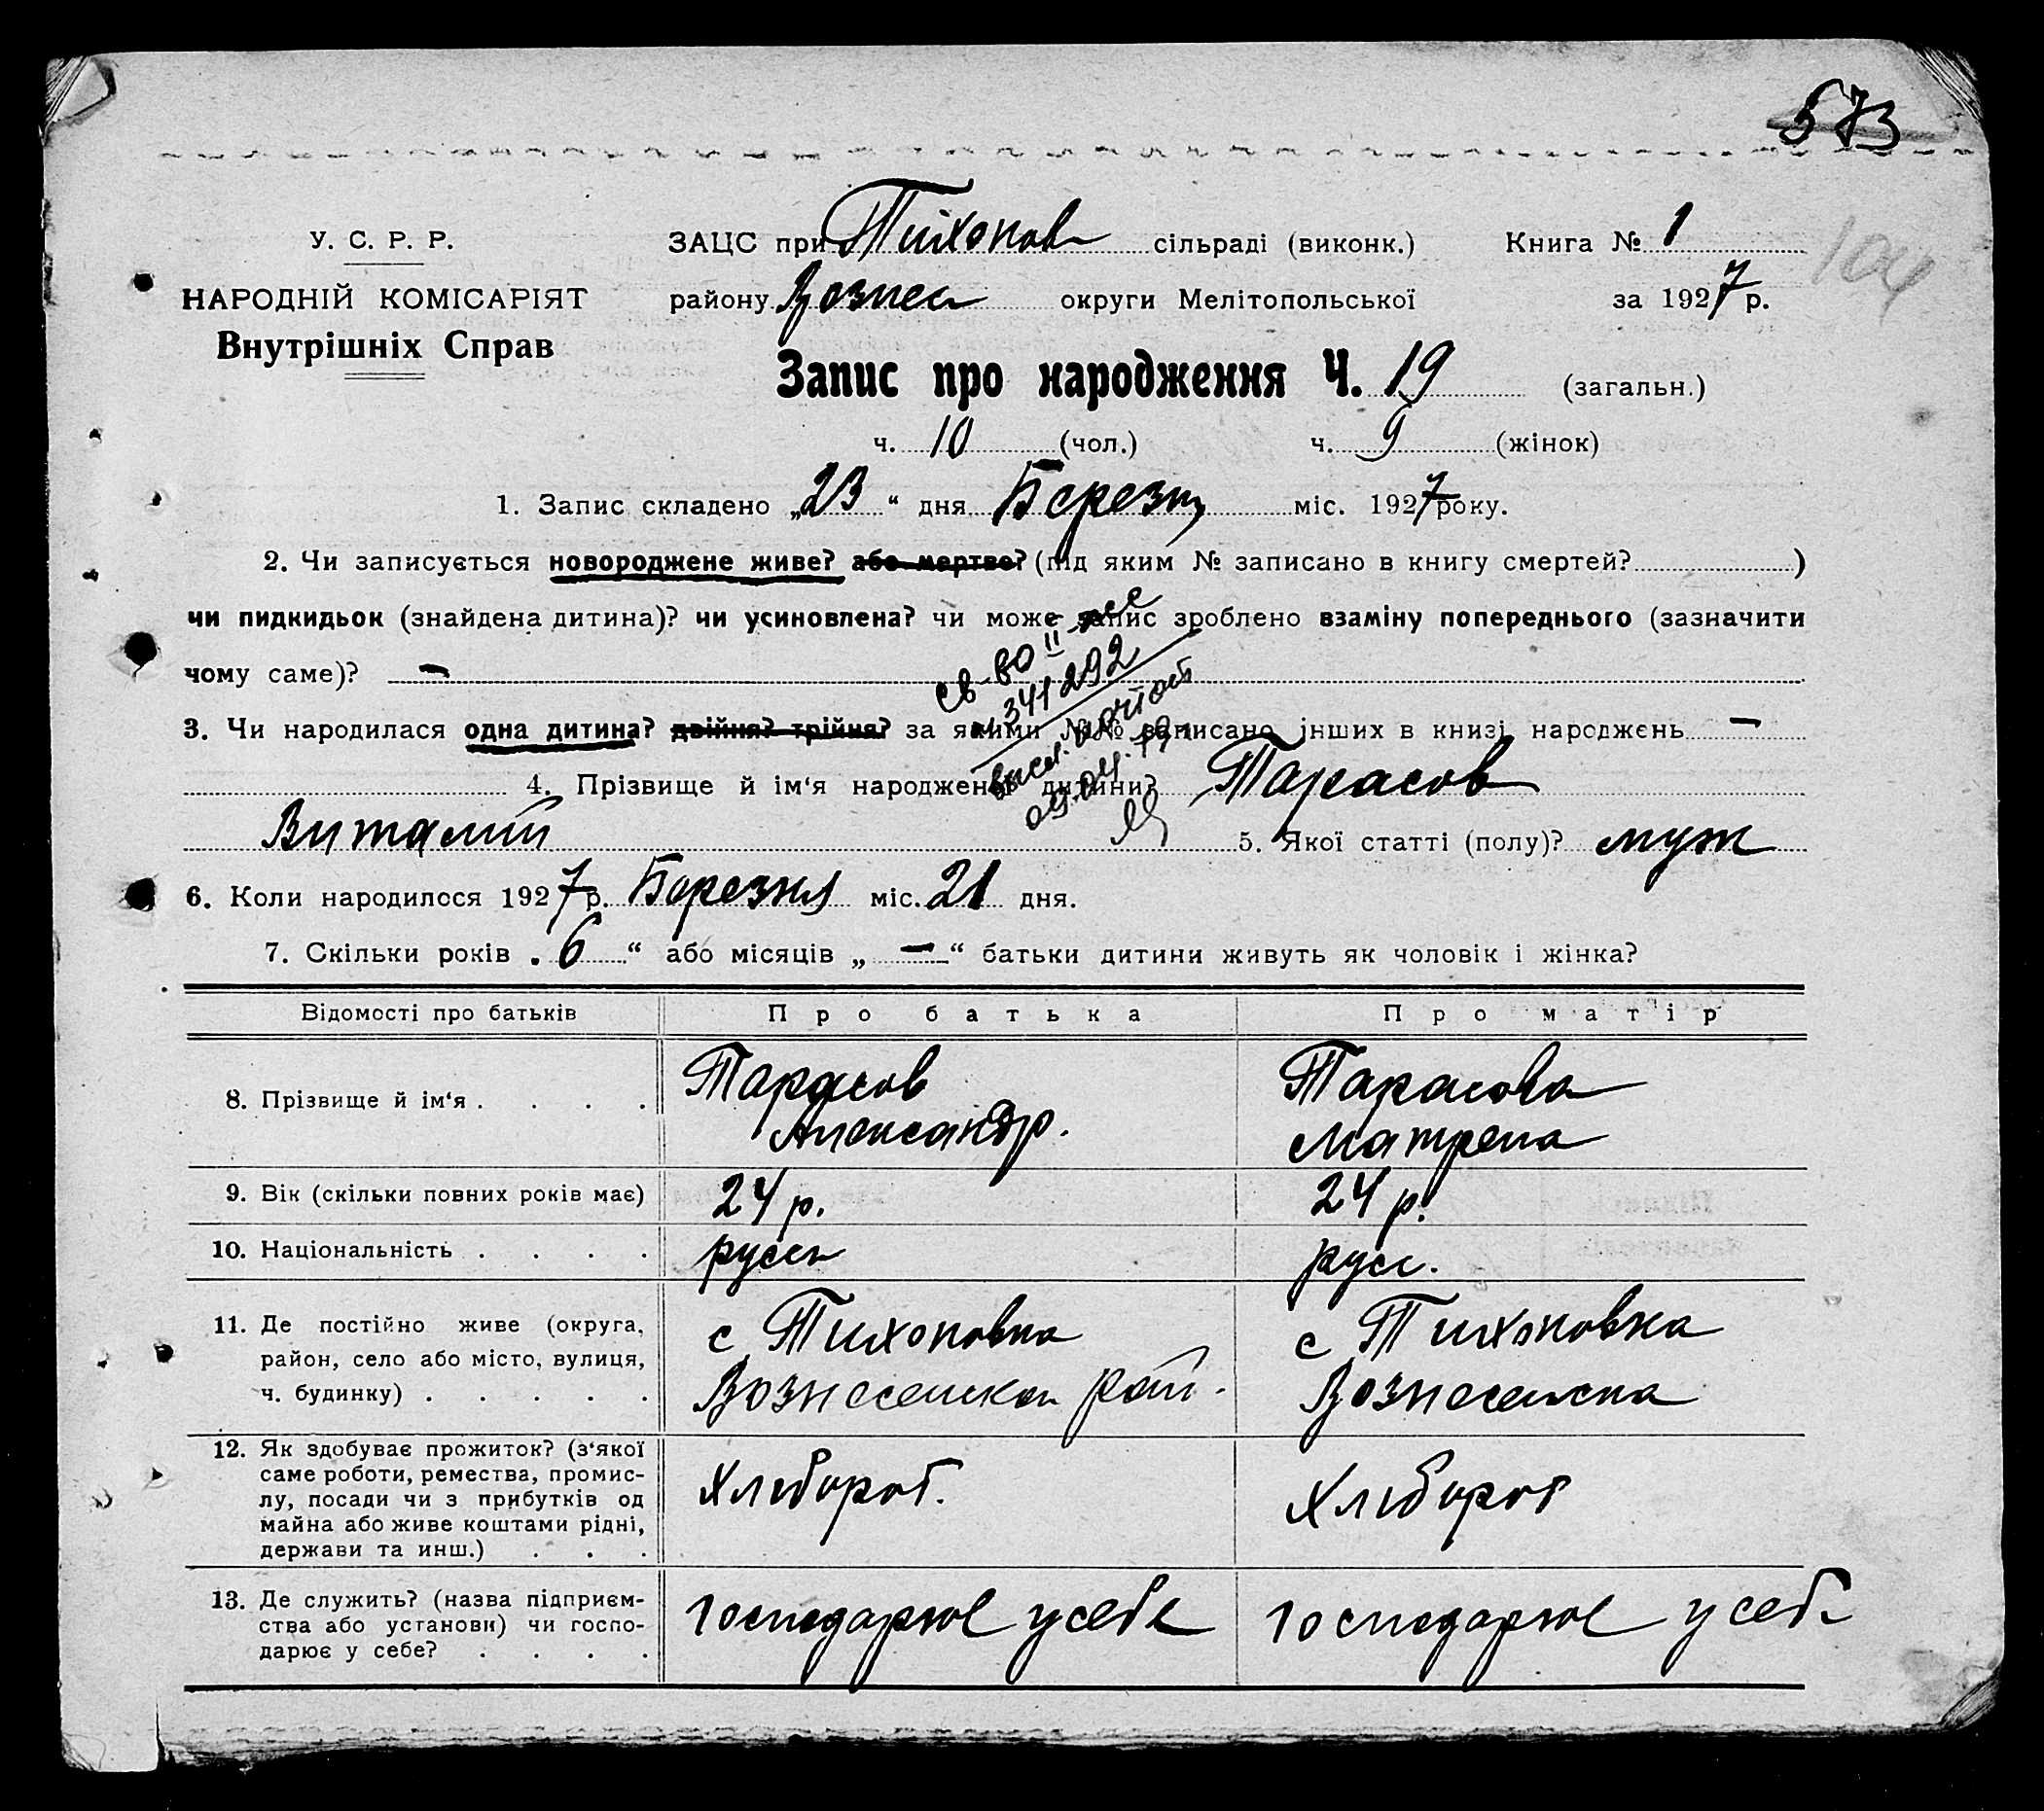 573
104
У. С. Р. Р.
НАРОДНІЙ КОМІСАРІЯТ
Внутрішніх Справ
ЗАЦС при Тихонов сільраді (виконк.) Книга № 1
району Вознес округи Мелітопольської за 1927 р.
Запис про народження Ч. 19 (загальн.)
ч. 10 (чол.) ч. 9 (жінок)
1. Запис складено „23“ дня Березня міс. 1927 року.
2. Чи записується новороджене живе? або мертве? (під яким № записано в книгу смертей? )
чи пидкидьок (знайдена дитина)? чи усиновлена? чи може запис зроблено взаміну попереднього (зазначити
чому саме)? —
св-во II
341292
высл.
09.04.19
3. Чи народилася одна дитина? двійня? трійня? за якими №№ записано інших в книзі народжень —
4. Прізвище й ім'я народженої дитини? Тарасов
Виталий 5. Якої статті (полу)? муж
6. Коли народилося 1927 р. Березня міс. 21 дня.
7. Скільки років „6“ або місяців „—“ батьки дитини живуть як чоловік і жінка?
Відомості про батьків Про батька Про матір
8. Прізвище й ім'я . . . . Тарасов Тарасова
Александр. Матрена
9. Вік (скільки повних років має) 24 р. 24 р.
10. Національність . . . . русск русс.
11. Де постійно живе (округа, с Тихоновка с Тихоновка
район, село або місто, вулиця,
ч. будинку) . . . . . Вознесенка рай. Вознесенска
12. Як здобуває прожиток? (з'якої
саме роботи, ремества, промис- Хлібороб. Хлібороб
лу, посади чи з прибутків од
майна або живе коштами рідні,
держави та инш.) . . .
13. Де служить? (назва підприєм-
ства або установи) чи госпо- господарює у себе господарює у себе
дарює у себе? . . . .